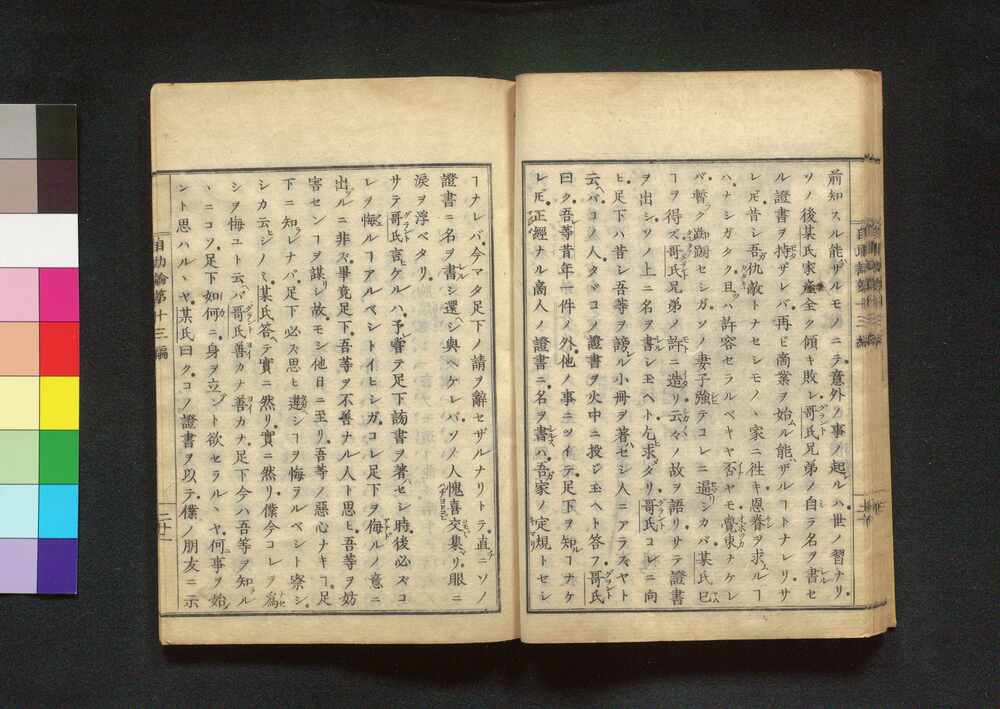 前知スル能ザルモノニテ意外ノ事ノ起ルハ世ノ習ナリ
ソノ後某氏家產全ク傾キ敗レ哥氏兄弟ノ自ラ名ヲ書セ
ル證書ヲ持ザレバ再ビ商業ヲ始ル能ザルヿトナレリサ
レ𪜈昔シ吾仇敵トナセシモノヽ家ニ徃キ恩眷ヲ求ルヿ
ハナシガタク且ハ許容セラルベキヤ否ヤモ覺束ナケレ
バ暫ク踟躕セシガソノ妻子強テコレニ逼リシカバ某氏巳
ヿヲ得ズ哥氏兄弟ノ許ニ造リ云々ノ故ヲ語リサテ證書
ヲ出シソノ上ニ名ヲ書シ玉ヘト乞求タリ哥氏コレニ向
ヒ足下ハ昔シ吾等ヲ謗ル小冊ヲ著セシ人ニアラズヤト
云バコノ人タヾコノ證書ヲ火中ニ投ジ玉ヘト答フ哥氏
曰ク吾等昔年一件ノ外他ノ事ニツイテ足下ヲ知ルヿナケ
レ𪜈正經ナル商人ノ證書ニ名ヲ書ハ吾家ノ定規トセシ
ヿナレバ今マタ足下ノ請ヲ辭セザルナリトテ直ニソノ
證書ニ名ヲ書シ還シ與ヘケレバソノ人愧喜交集リ眼ニ
淚ヲ浮ベタリ
サテ哥氏言ケルハ予嘗テ足下謗書ヲ著セシ時後必ズコ
レヲ悔ルヿアルベシトイヒシガコレ足下ヲ侮ルノ意ニ
出ルニ非ズ畢竟足下吾等ヲ不善ナル人ト思ヒ吾等ヲ妨
害センヿヲ謀リシ故モシ他日ニ至リ吾等ノ惡心ナキヿ足
下ニ知レナバ足下必ズ思ヒ違シヿヲ悔ラルベシト察シ
シカ云ヒシノミ某氏答テ實ニ然リ實ニ然リ僕今コレヲ爲
シヲ悔ユト云バ哥氏善カナ善カナ足下今ハ吾等ヲ知ル
ヽニコソ足下如何ニ身ヲ立ント欲セラルヽヤ何事ヲ始
ント思ハルヽヤ某氏曰クコノ證書ヲ以テ僕ノ朋友ニ示
自助論第十三編
二十一